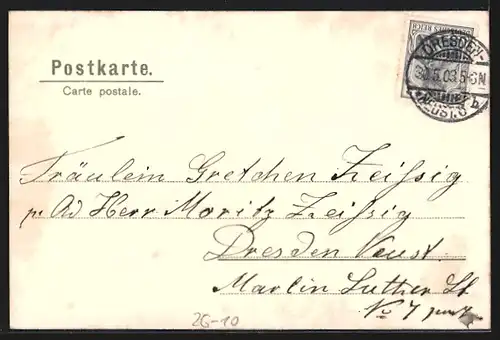 Postkarte.
Carte postale.
DEUTSCHES REICH
DRESDEN-
5-6N
NEUST. 6 b
Fräulein Gretchen Zeißig
pr. Ad Herr Moritz Zeißig
Dresden Neust.
Martin Luther St
No 7
26-10